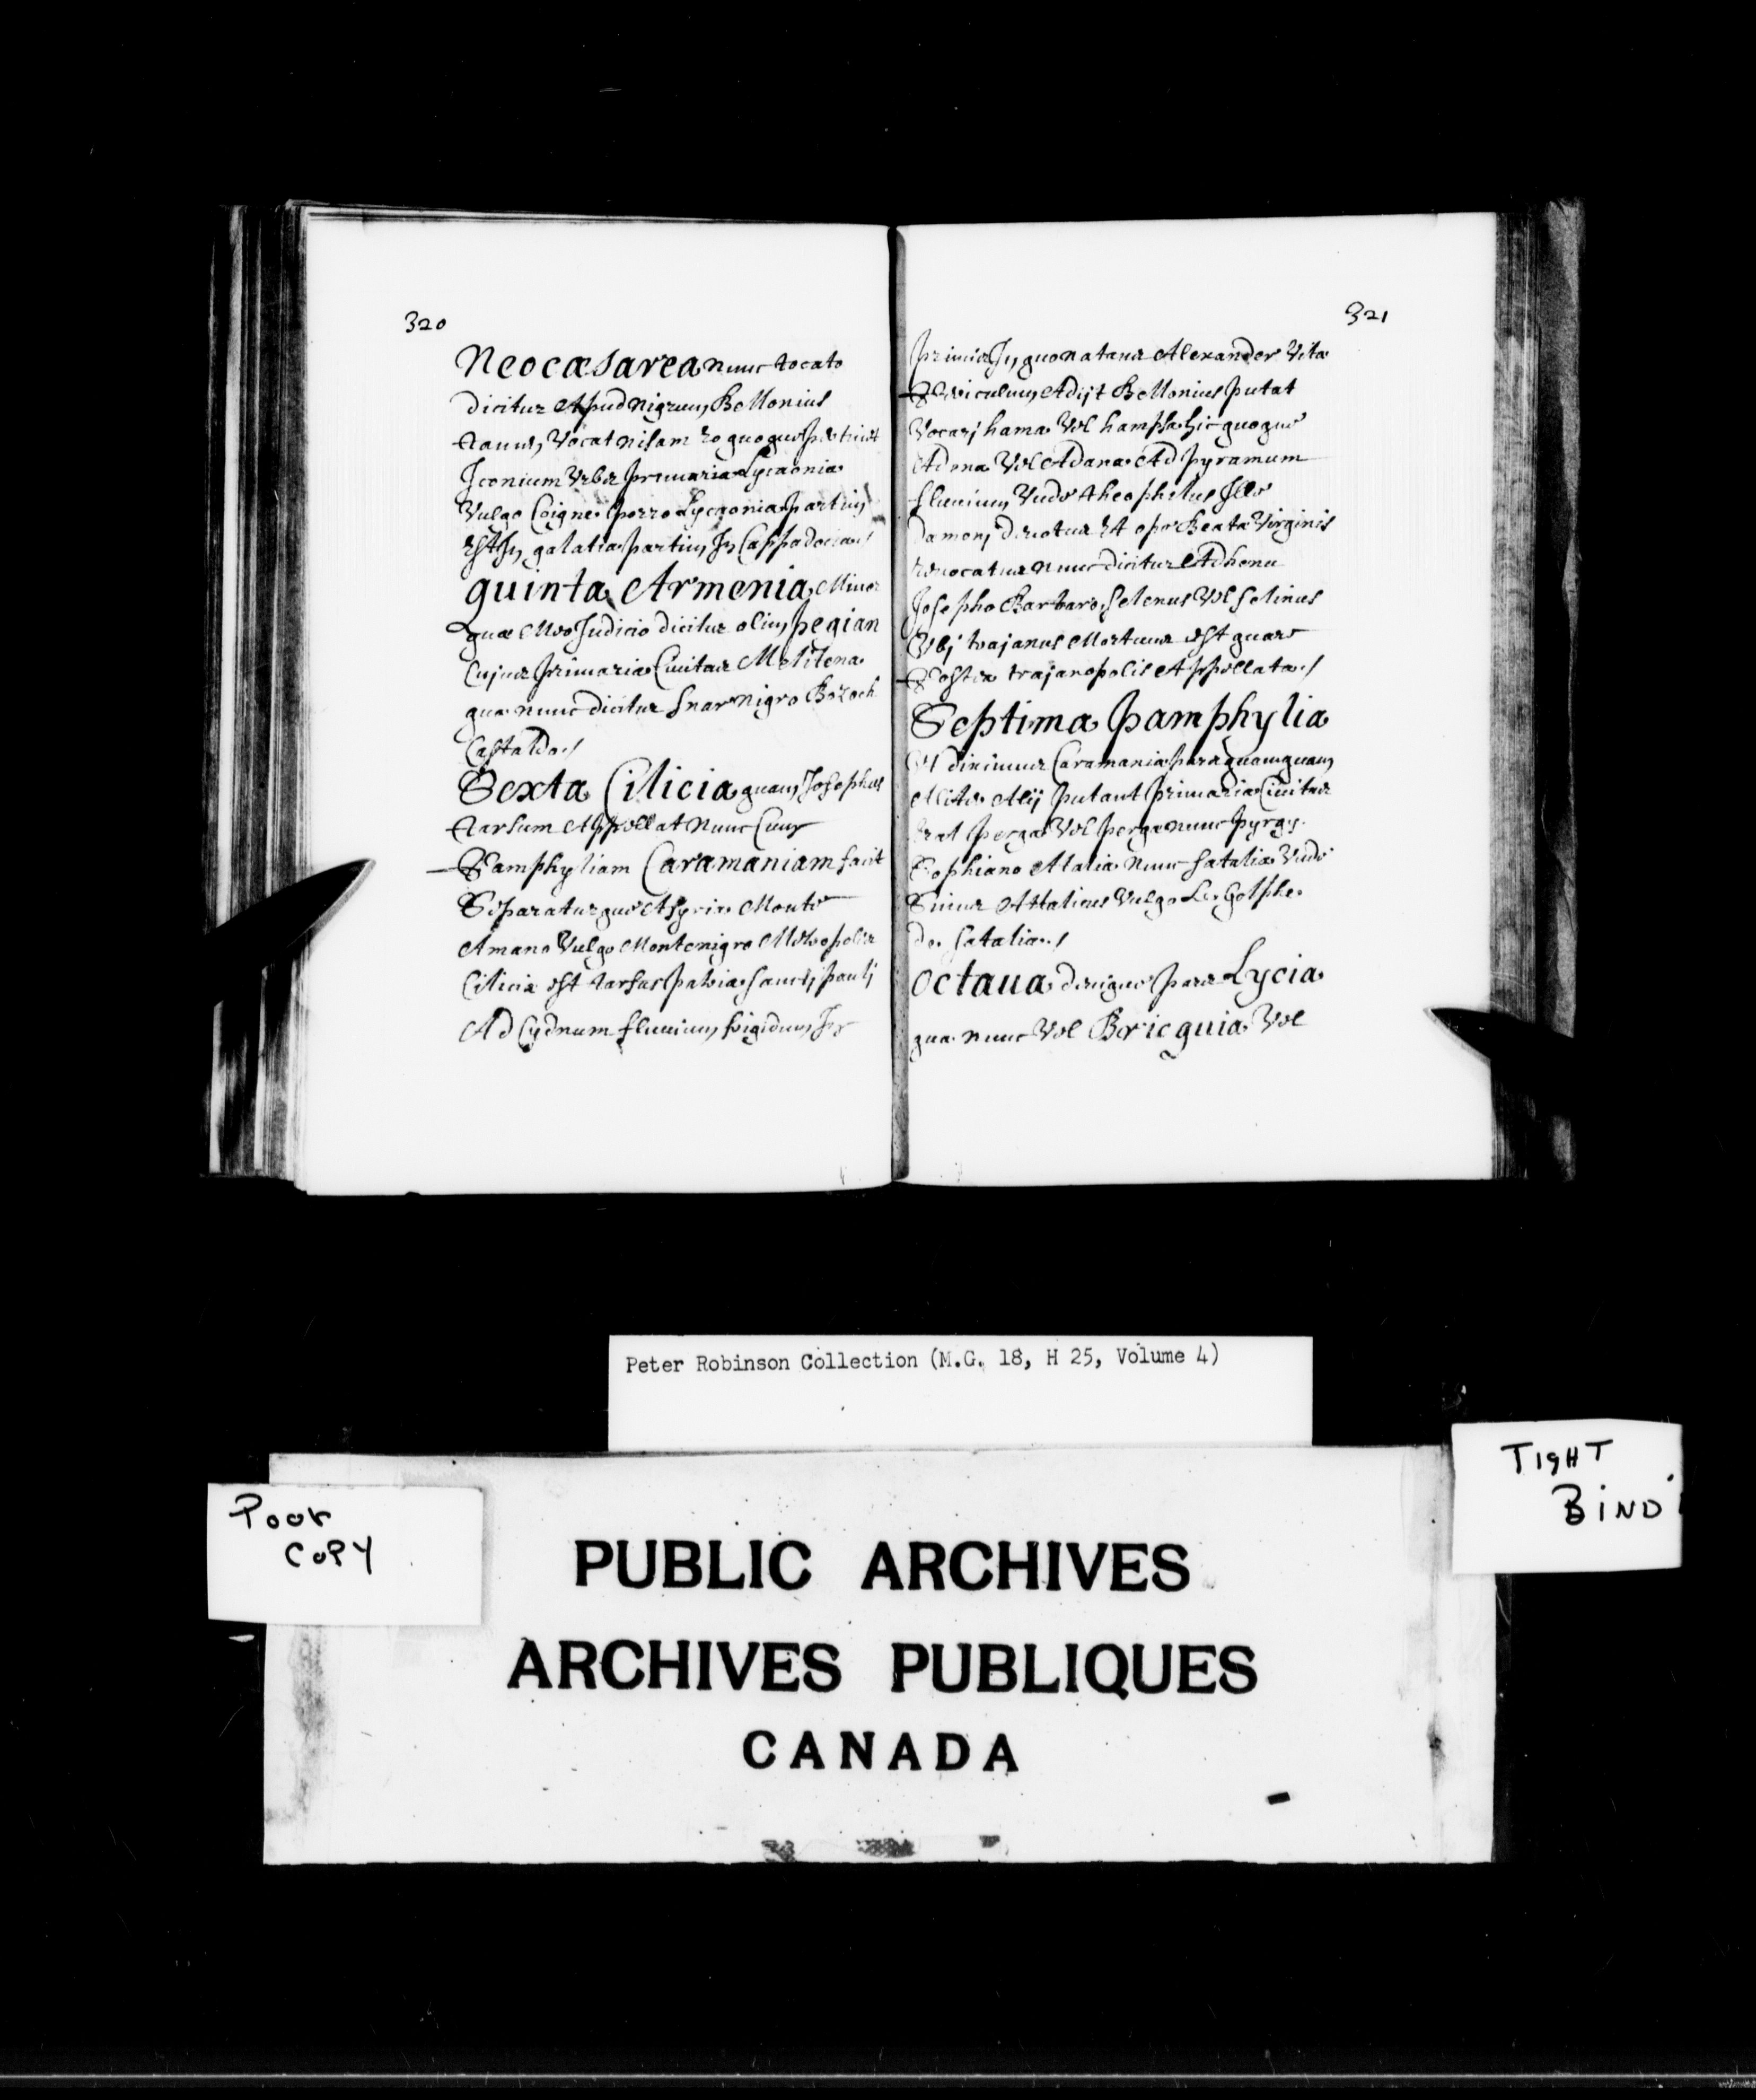 320
Neocæsarea nunc tocato
dicitur Apud nigrum, Bellonius
tamen, Vocat nisam Eo quoque pertinet
Iconium Urbs primaria Lycaonia
Vulgo Coigne porro Lycaonia partim
Est In galatia partim In Cappadocia /
quinta Armenia Minor
quæ Meo Judicio dicitur olim pegian
Cujus primaria Civitas Melitena
qua nunc dicitur Suar nigro Bozoch
Castaldo /
Sexta Cilicia quam Josephus
tarsum Appellat nunc Cum
Pamphyliam Caramaniam facit
Separaturque A Syria Monte
Amano Vulgo Montenigro Metropolis
Cilicia est tarsus patria sancti pauli
Ad Cydnum fluvium frigidum In
321
primis In quo natans Alexander Vita
Periculum Adijt Bellonius putat
Vocari hama Vel hampsa hic quoque
Adena Vel Adana Ad pyramum
fluvium Unde theophilus Ille
damoni devotus Et ope Beata Virginis
revocatus nunc dicitur Adhena
Josepho Barbaro, Selenus Vel selinus
Ubi trajanus Mortuus est quare
Postea trajanopolis Appellata /
Septima pamphylia
Ut diximus Caramania pars quamquam
Alite Alij putant primaria Civitas
Erat perga Vel perge nunc pyrgi
Sophiano Atalia nunc satalia Unde
Sinus Attalicus Vulgo Le Golphe
de satalia /
Octava denique pars Lycia
qua nunc Vel Bricquia Vel
Peter Robinson Collection (M.G. 18, H 25, Volume 4)
Poor
Copy
Tight
Bind
PUBLIC ARCHIVES
ARCHIVES PUBLIQUES
CANADA